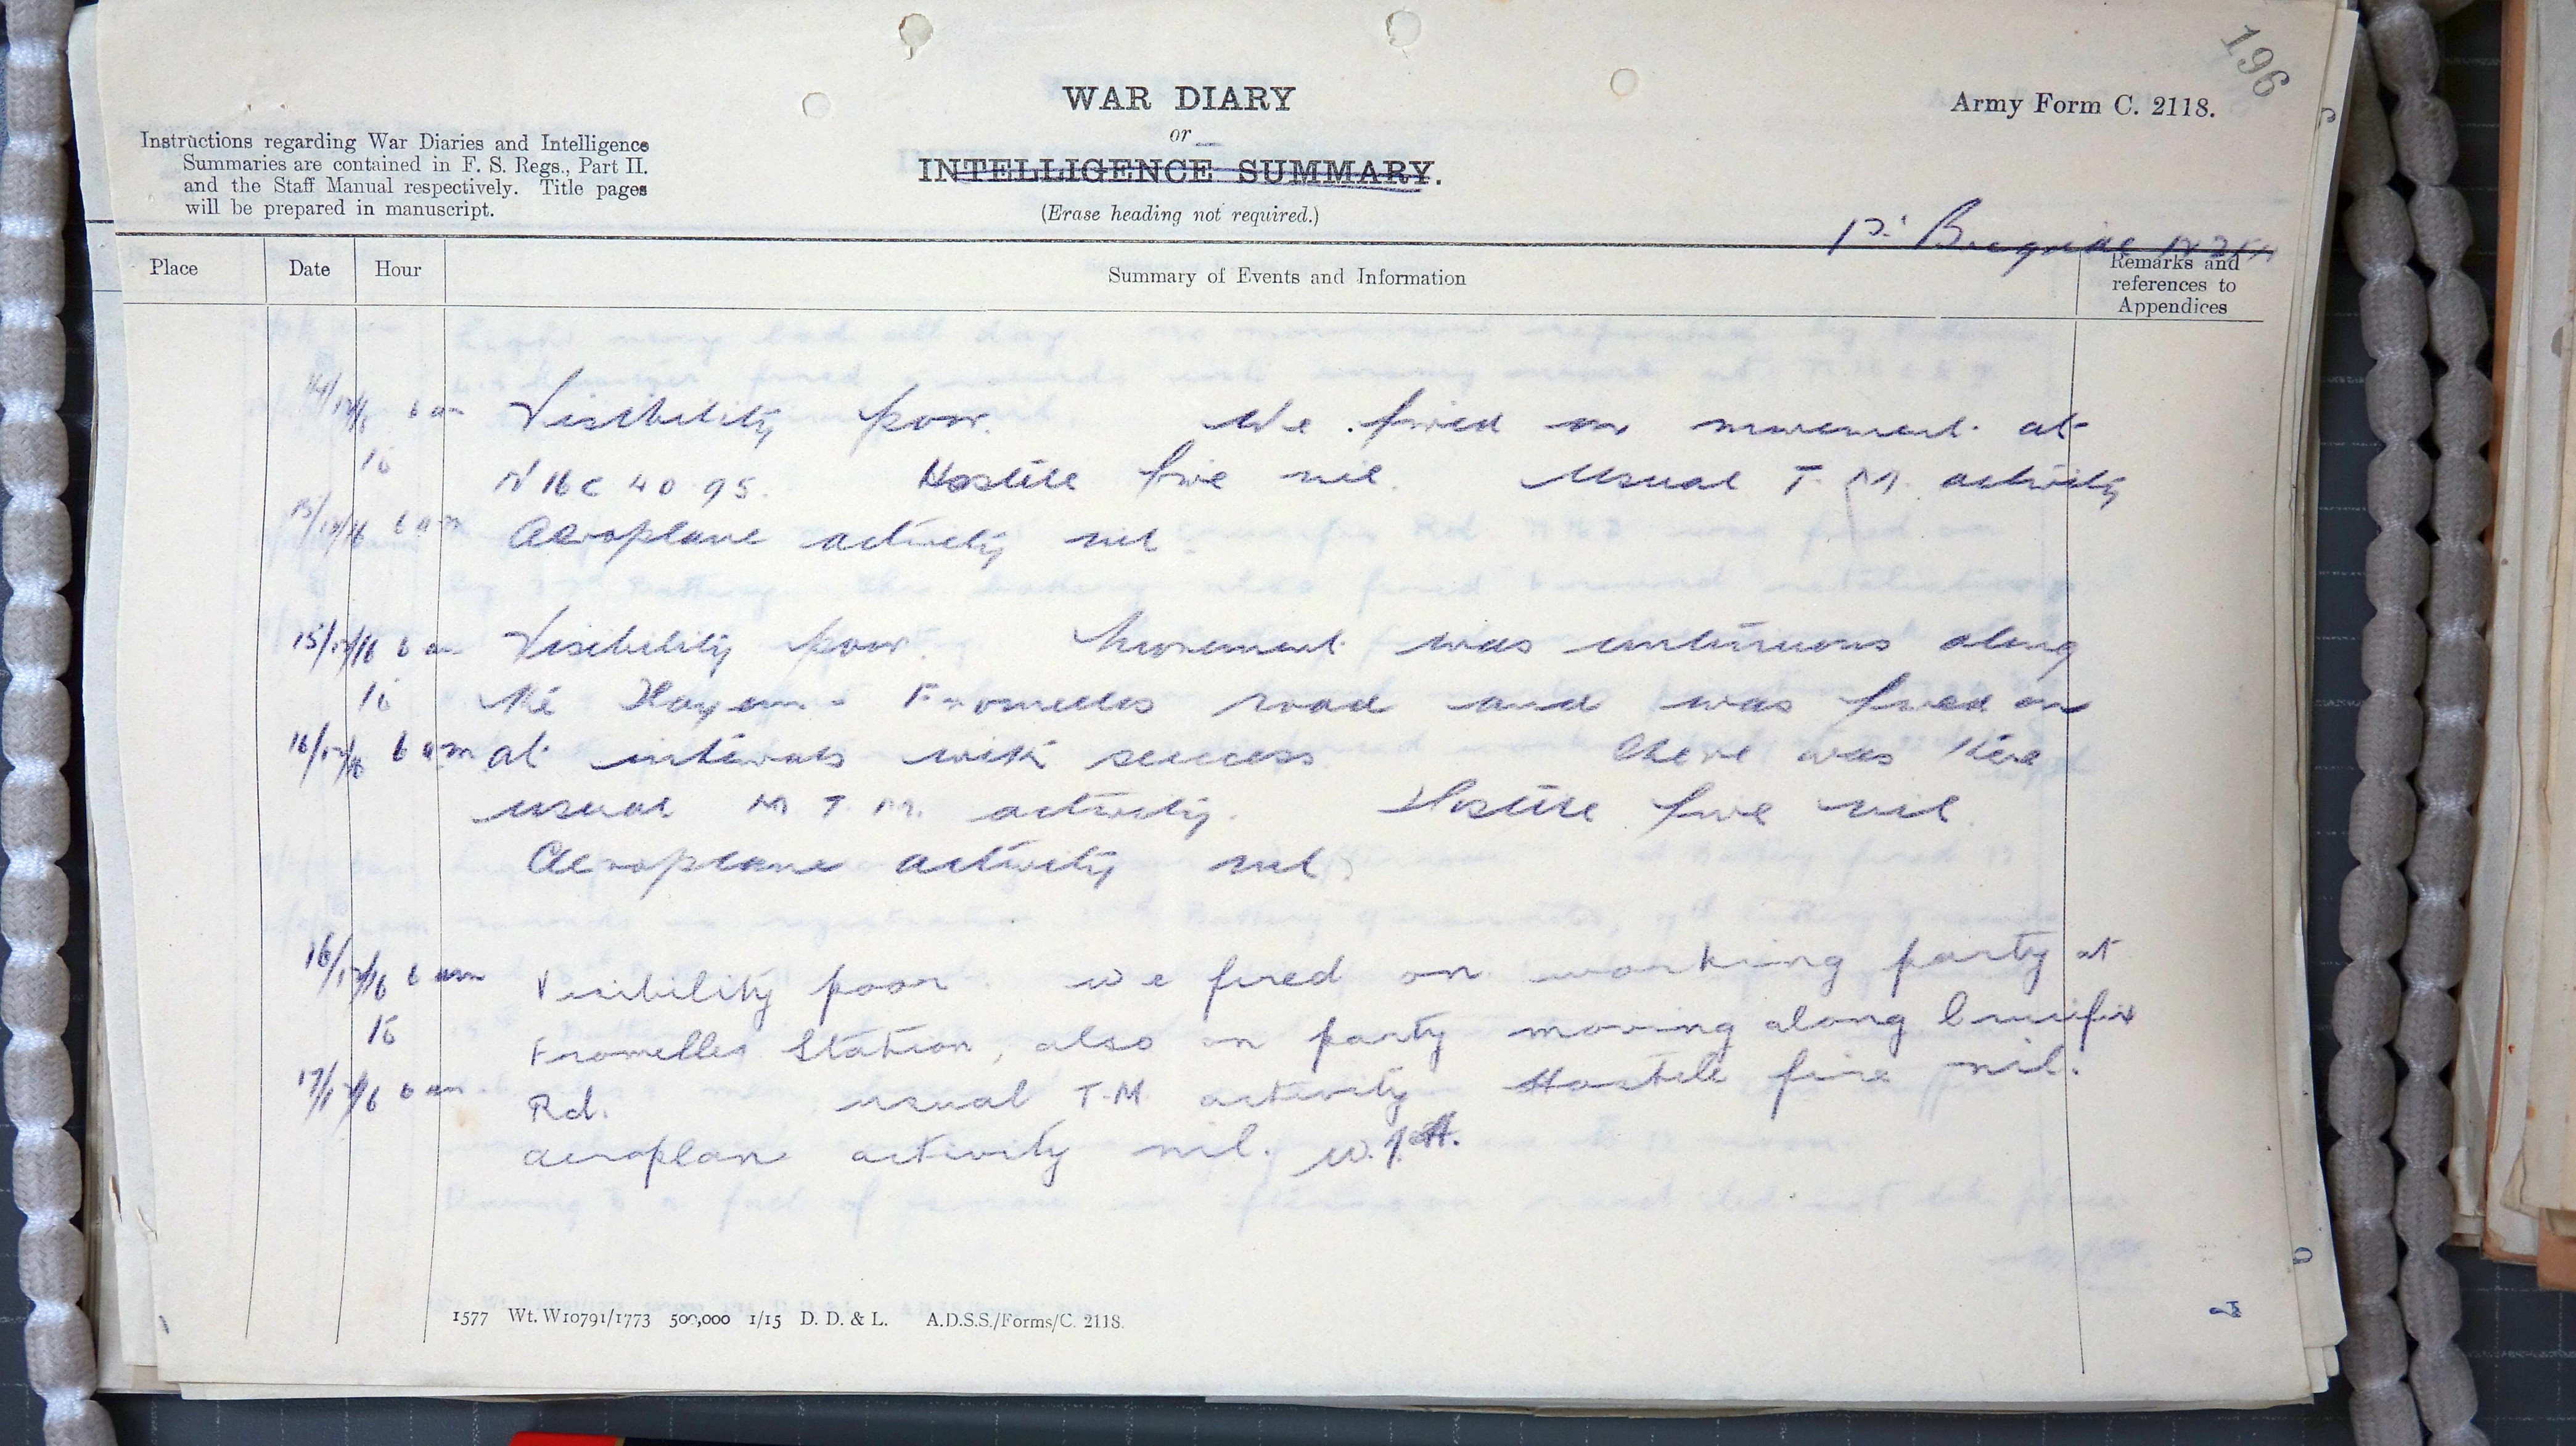 196
WAR DIARY
or
INTELLIGENCE SUMMARY.
(Erase heading not required.)
Army Form C. 2118.
Instructions regarding War Diaries and Intelligence
Summaries are contained in F. S. Regs., Part II.
and the Staff Manual respectively. Title pages
will be prepared in manuscript.
Place Date Hour Summary of Events and Information Remarks and
references to
Appendices
14/12/16 6 am Visibility poor. We fired on movement at
to N 16 c 40 95. Hostile fire nil. Usual T. M. activity
15/12/16 6 am Aeroplane activity nil
15/12/16 6 am Visibility poor. Movement was continuous along
to the Hayem - Fromelles road and was fired on
16/12/16 6 am at intervals with success There was the
usual M. T. M. activity. Hostile fire nil.
Aeroplane activity nil.
16/12/16 6 am Visibility poor. We fired on working party at
to Fromelles Station, also on party moving along Crucifix
17/12/16 6 am Rd. usual T.M. activity Hostile fire nil.
aeroplane activity nil. W.J.H.
1577 Wt. W10791/1773 500,000 1/15 D. D. & L. A.D.S.S./Forms/C. 2118.